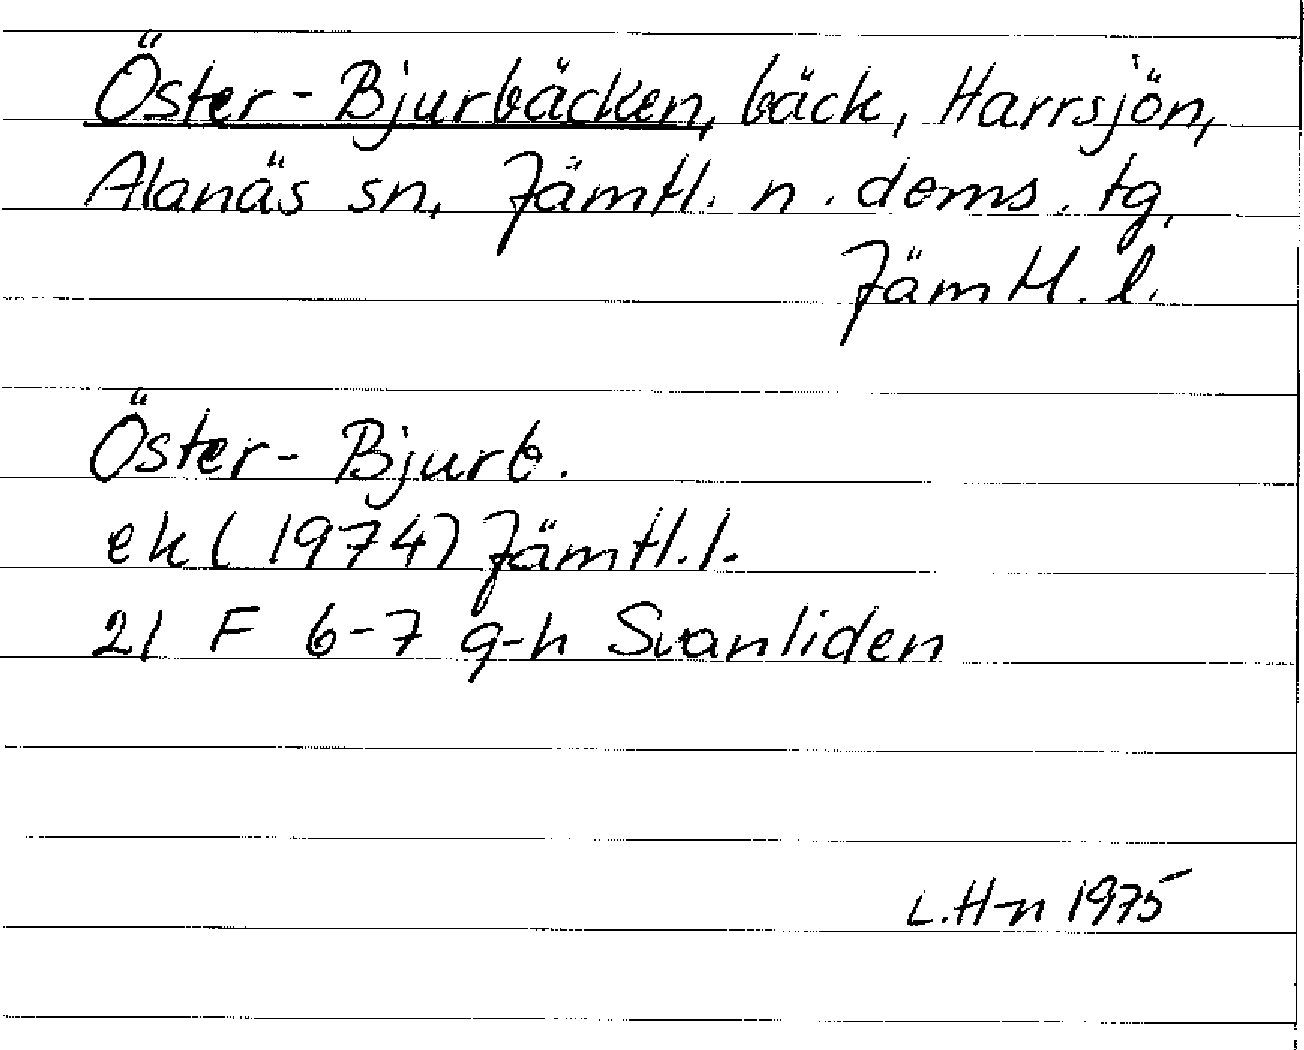 Öster-Bjurbäcken, bäck, Harrsjön,
Alanäs sn, Jämtl. n. doms. tg,
Jämtl. l.
Öster-Bjurb.
ek (1974) Jämtl. l.
21 F 6-7 g-h Svanliden
L.H-n 1975